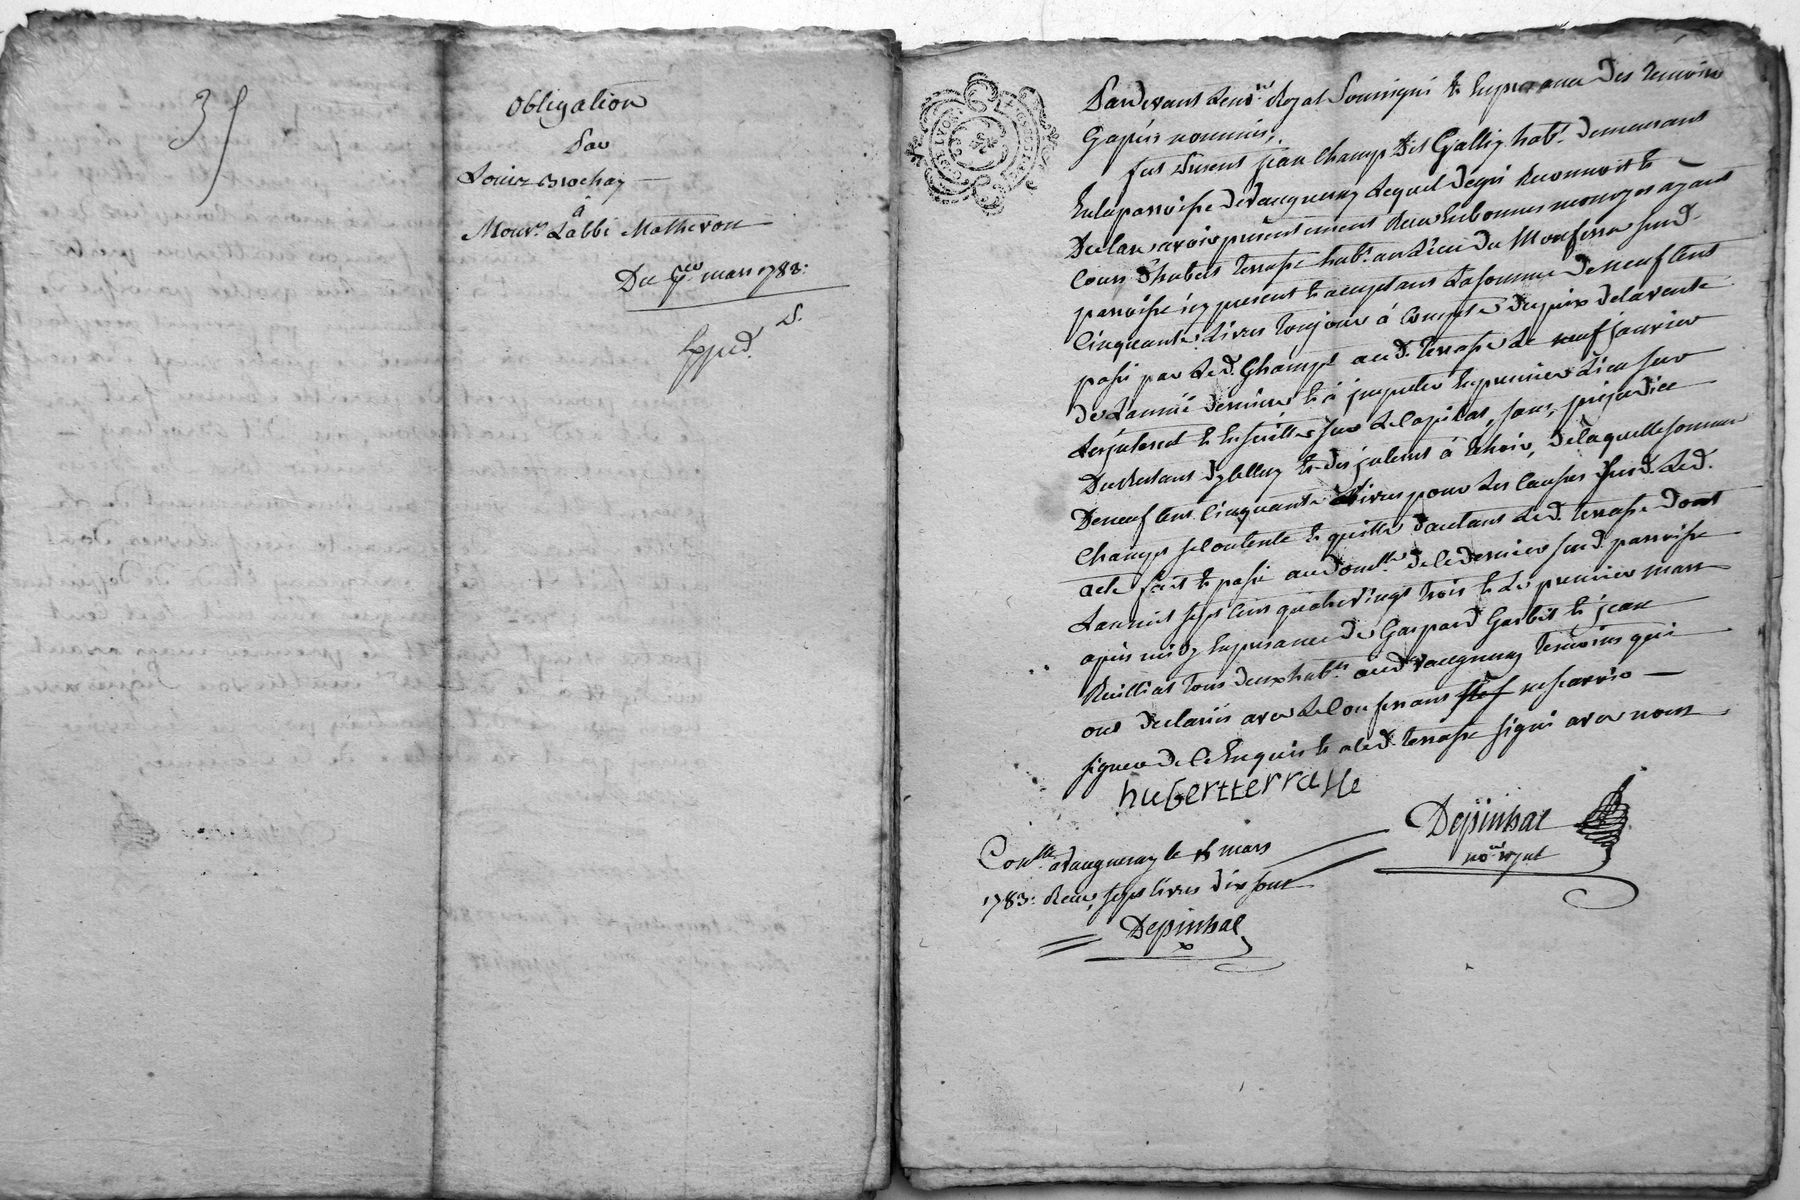 35
Obligation
Par
Louis Brochay
à
Mour. Labbé Matheron
Du 1er mars 1783:
Exped. S.
Pardevant Le no.re Royal Soussigné & En presence des temoins
Cyaprès nommés,
fut Present jean Champ dit Gallix hab.t demeurant
En la parroisse de Vaugneray Lequel de gré Reconnoit &
Declare avoir presentement Reçu En bonnes monoyes ayant
Cours d'hubert terrasse hab.t au Lieu du sur d.
parroisse icy present & acceptant La somme de neuf Cent
Cinquante Livres toujour à Compte du prix de la vente
passé par Led. Champt aud. terrasse Le neuf janvier
de Lannée derniere & à imputer En premier Lieu sur
Les jnterest & Ensuitte sur Le Capital, sans prejudice
Du Restant d'Icelluy & des jnterest à Echoir, de laquelle somme
De neuf Cent Cinquante Livres pour Les Causes susd. Led.
Champ se Contente & quitte d'autant Led. terrasse Dont
acte fait & passé au domlle de Ce dernier sus d. parroisse
Lan mil sept Cent quatre vingt trois & Le premier mars
après midy En presence de Gaspard Garbit & jean
Reuilliat tous deux hab.ts aud. Vaugneray temoins qui
ont declarés avec Le Confessant ne sçavoir
signer de Ce Enquis & a led. terrasse signé avec nous
huberttterrasse
Depinhat
no.re royal
Con.lle à Vaugneray le 15 mars
1783: Reçu sept livres dix sous
Depinhat